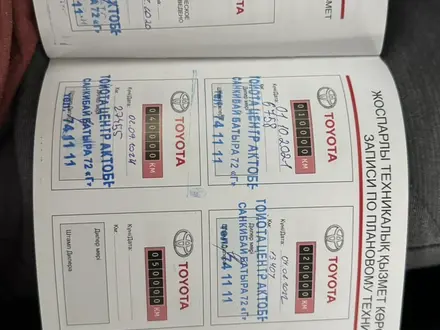 ҚЫЗМЕТ
ЖОСПАРЛЫ ТЕХНИКАЛЫҚ ҚЫЗМЕТ КӨРС
ЗАПИСИ ПО ПЛАНОВОМУ ТЕХНИ
TOYOTA
010000 КМ
Күні/Дата: 01.10.2021
6758
ТОЙОТА ЦЕНТР АКТОБЕ
САНКИБАЙ БАТЫРА 72 «Г»
тел: 74 11 11
TOYOTA
020000 КМ
Күні/Дата: 04.04.2022
13407
ТОЙОТА ЦЕНТР АКТОБЕ
САНКИБАЙ БАТЫРА 72 «Г»
тел: 74 11 11
TOYOTA
040000 КМ
Күні/Дата:
Км: 27455
ТОЙОТА ЦЕНТР АКТОБЕ
САНКИБАЙ БАТЫРА 72 «Г»
тел: 74 11 11
TOYOTA
050000 КМ
Күні/Дата:
Км:
Дилер мөрі
Штамп Дилера